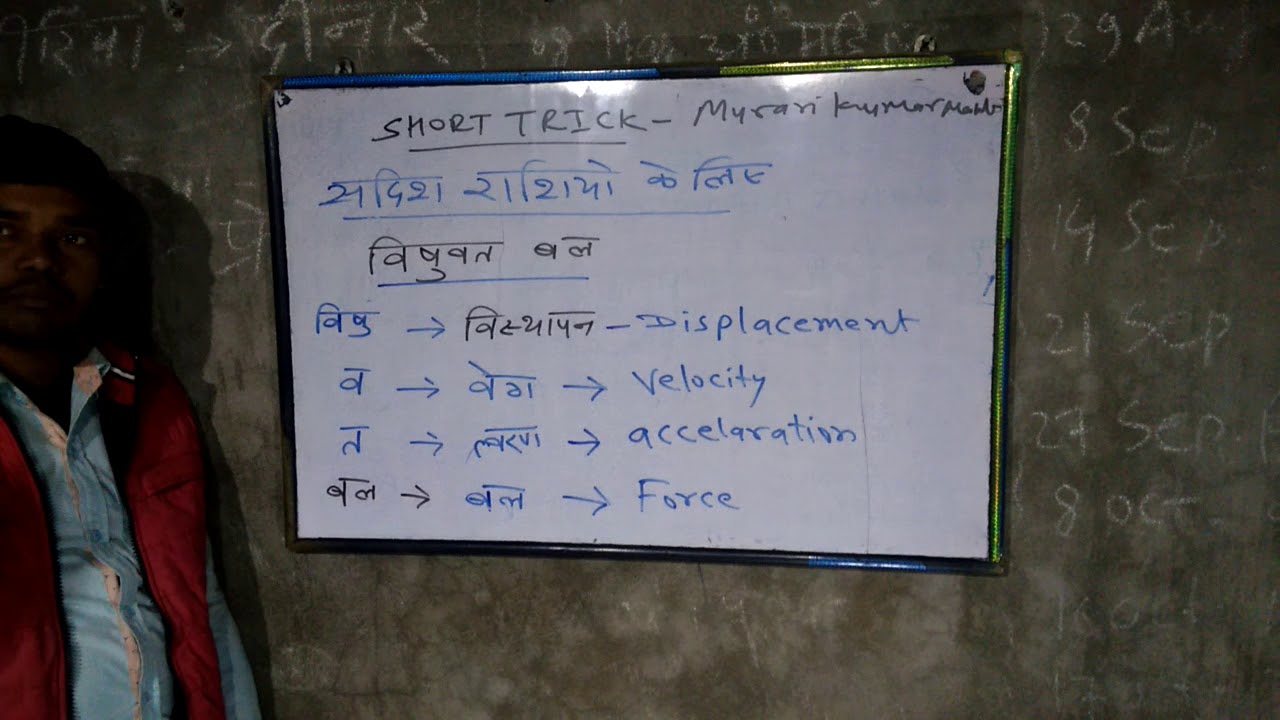 दीनार
29 Aug
SHORT TRICK - Murari Kumar
8 Sep
सदिश राशियो के लिए
14 Sep
विषुवत बल
विषु → विस्थापन - Displacement
21 Sep
व → वेग → Velocity
त → त्वरण → accelaration
27 Sep
बल → बल → Force
8 Oct